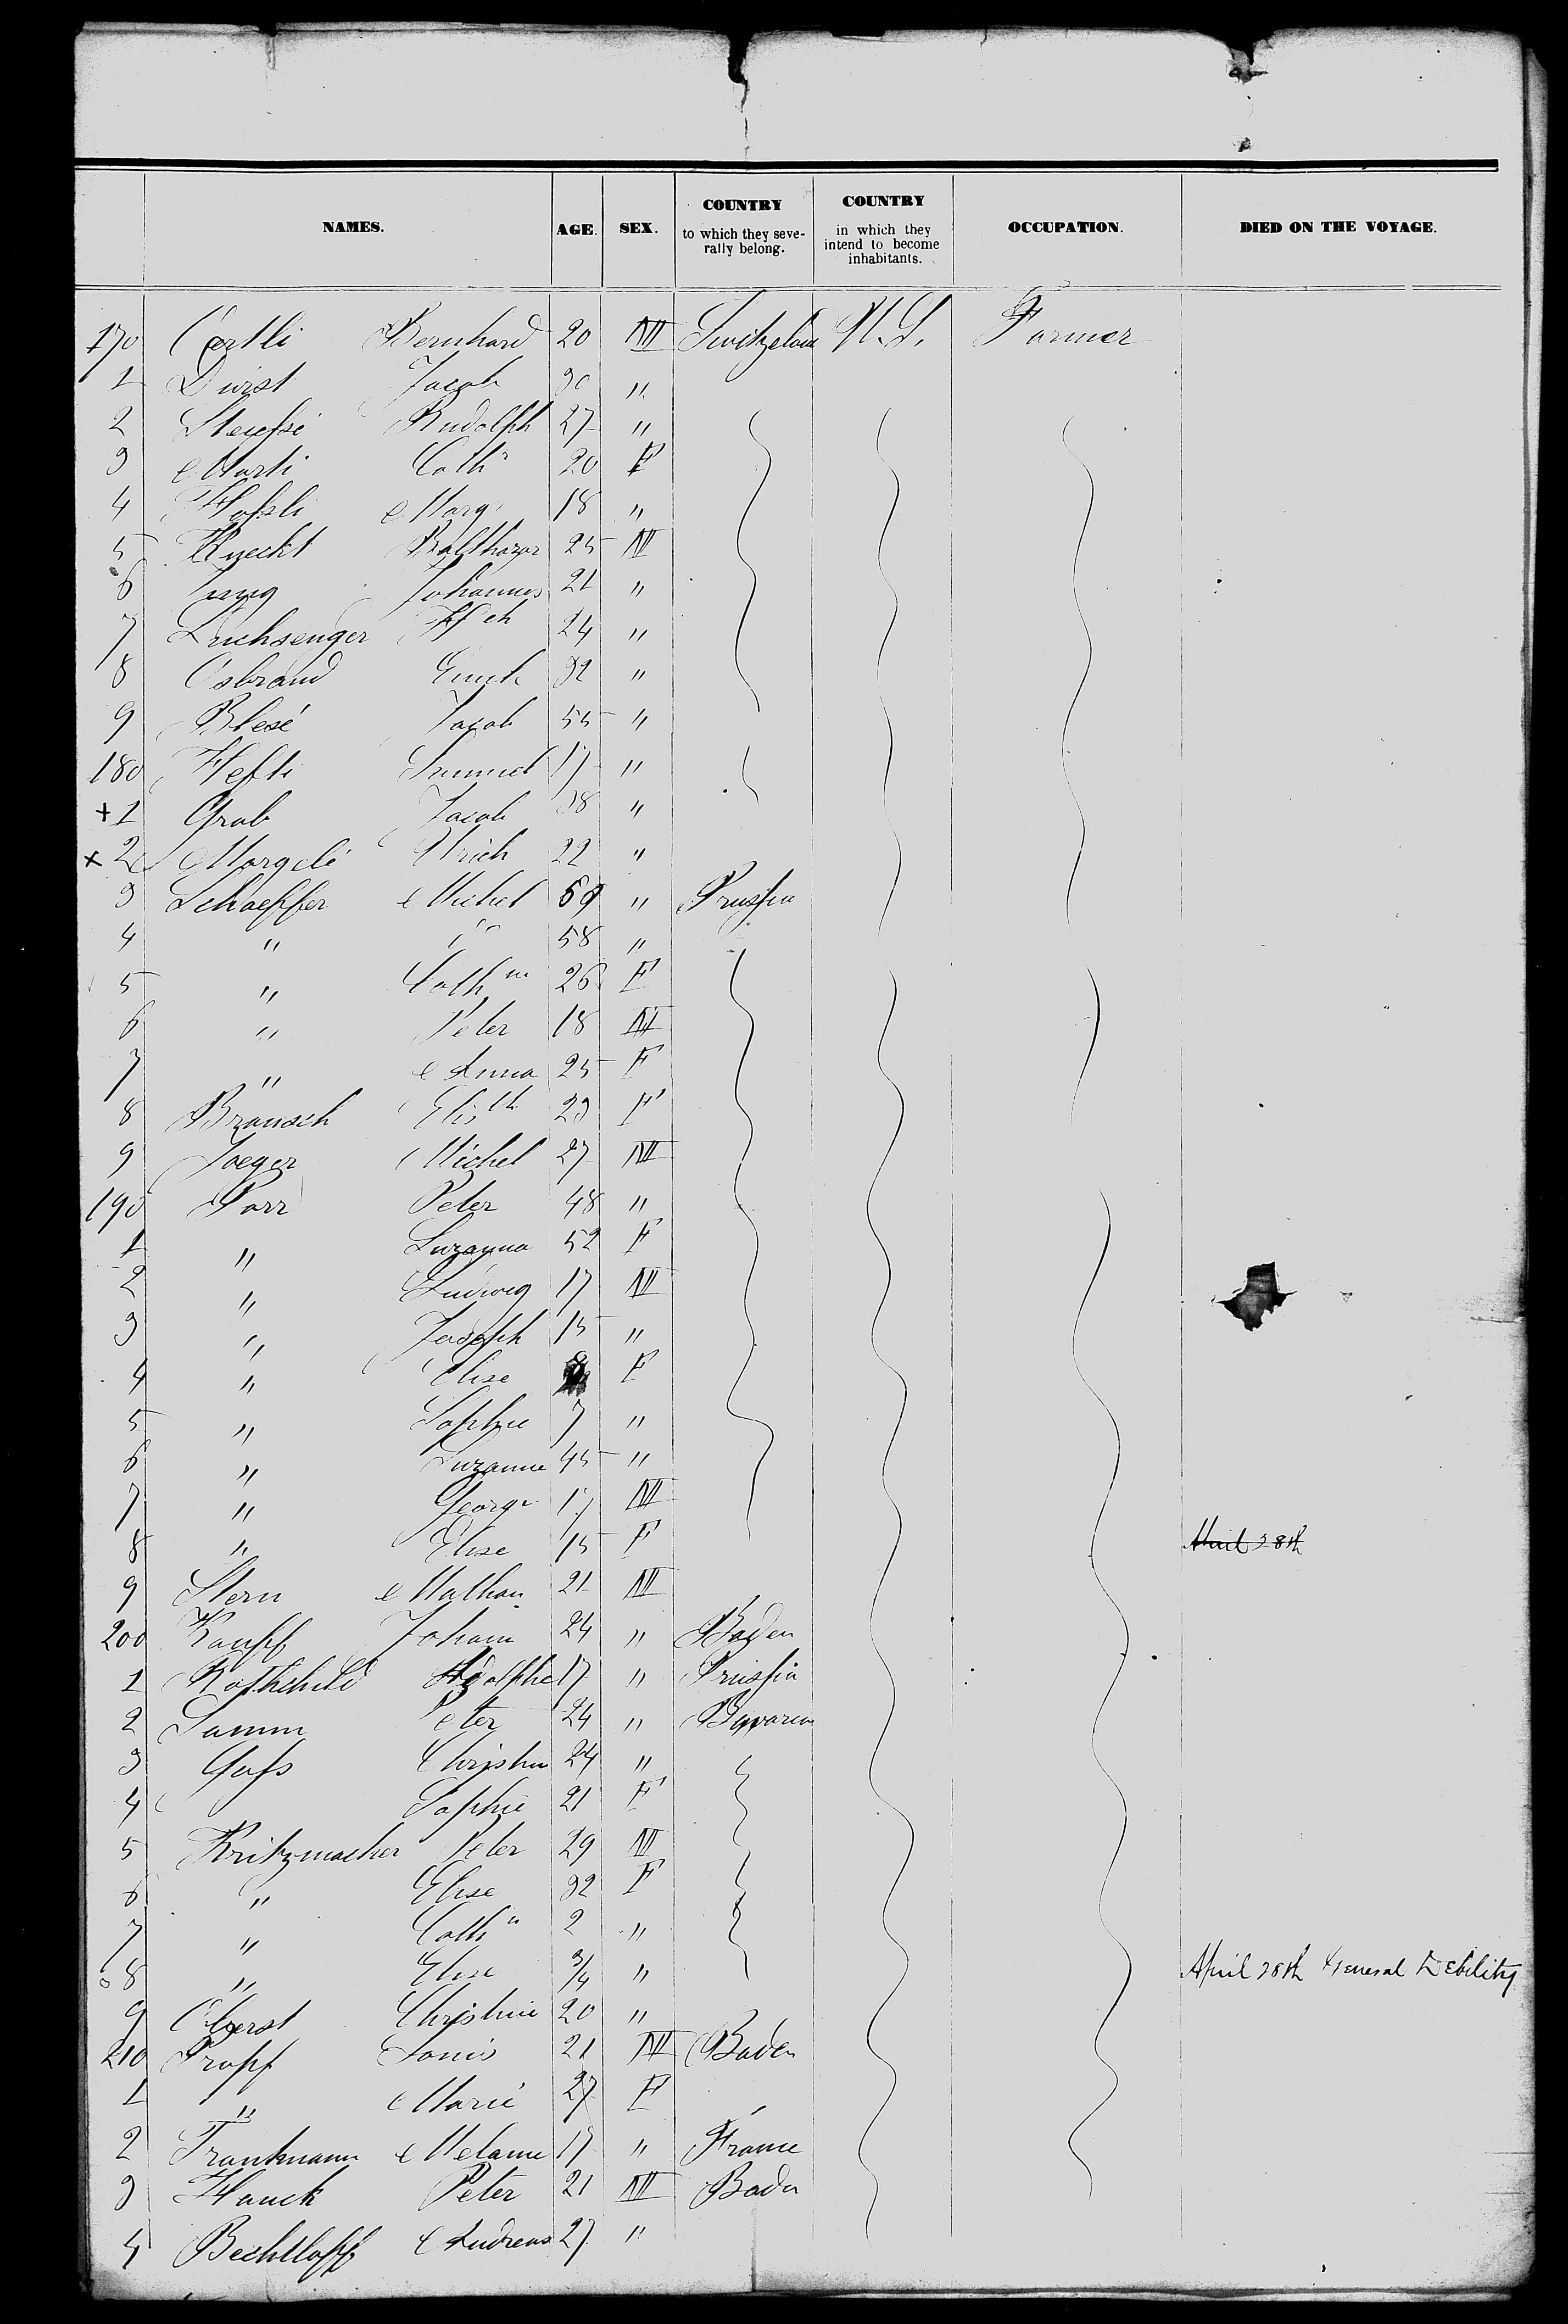 NAMES. AGE. SEX. COUNTRY to which they severally belong. COUNTRY in which they intend to become inhabitants. OCCUPATION. DIED ON THE VOYAGE.
170 Oertli Bernhard 20 M Switzeland U.S. Farmer
1 Dürst Jacob 30 "
2 Steussi Rudolph 27 "
3 Marti Cath 20 F
4 Hössli Marg 18 "
5 Knecht Balthazar 25 M
6 Johannes 21 "
7 Luchsenger 24 "
8 Osbrand 32 "
9 Blesé Jacob 55 "
180 Hefti Samuel 17 "
+ 1 Grab Jacob 38 "
x 2 Margeli Ulrich 22 "
3 Schaeffer Michel 59 " Prussia
4 " " 58 "
5 " Cath 26 F
6 " Peter 18 M
7 " Anna 25 F
8 Brausch Elisth 23 F
9 Jaeger Michel 27 M
190 Parr Peter 48 "
1 " Suzanna 52 F
2 " Ludwig 17 M
3 " Joseph 15 "
4 " Elise F
5 " Sophie 7 "
6 " Suzanne 45 "
7 " George 17 M
8 " Elise 15 F April 28th
9 Stern Nathan 21 M
200 Kaupf Johann 24 " Baden
1 Rothschild Adolphe 17 " Prussia
2 Samm Peter 24 " Bavaria
3 Gass Christin 24 "
4 Sophie 21 F
5 Kritzmacher Peter 29 M
6 " Elise 32 F
7 " Cath 2 "
8 " Elise 3/4 " April 28th General Debility
9 Oberst Christine 20 "
210 Propf Louis 21 M Baden
1 " Marie 27 F
2 Trautmann Melanie 17 " France
3 Hauck Peter 21 M Baden
4 Bechtloff Andreas 27 "